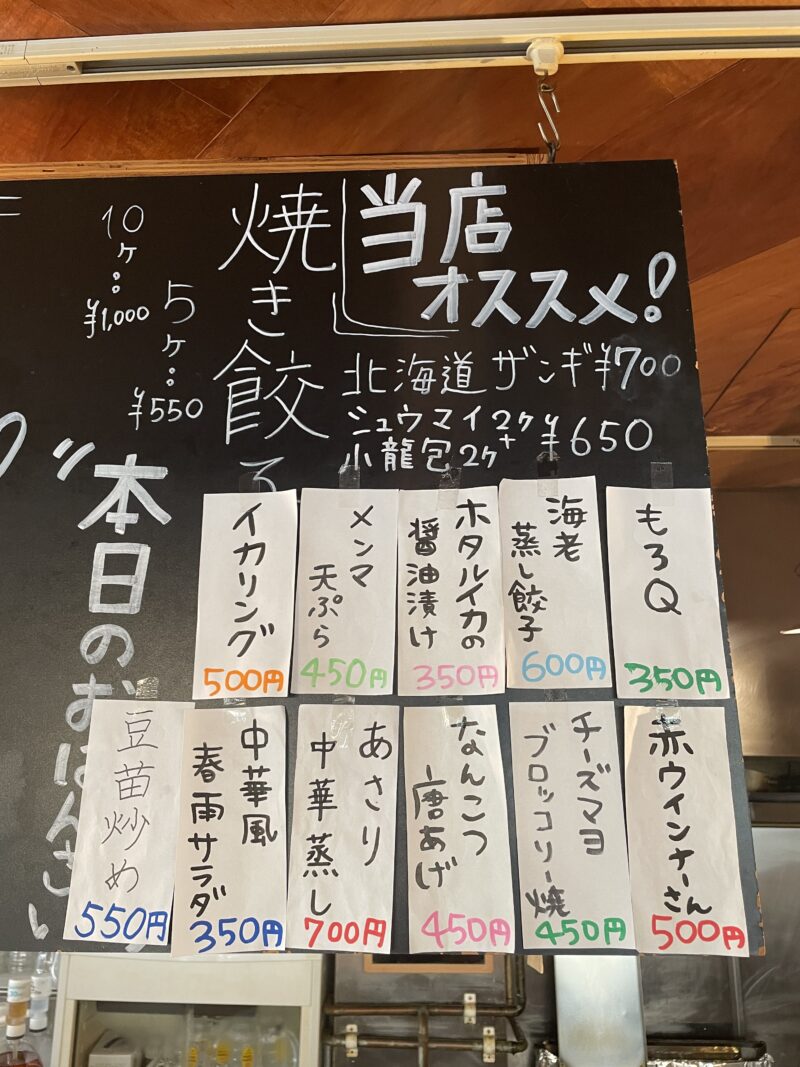 当店
オススメ!
北海道ザンギ¥700
シュウマイ2ケ+
小龍包2ケ
¥650
焼き餃子
5ケ:
¥550
10ケ:
¥1,000
"本日のおばんさい
もろQ
350円
海老
蒸し餃子
600円
ホタルイカの
醤油漬け
350円
メンマ
天ぷら
450円
イカリング
500円
赤ウインナーさん
500円
チーズマヨ
ブロッコリー焼
450円
なんこつ
唐あげ
450円
あさり
中華蒸し
700円
中華風
春雨サラダ
350円
豆苗炒め
550円